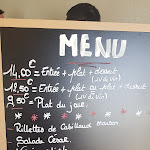 MENU
14,00€ = Entrée + plat + dessert
(1/4 de Vin)
12,50€ = Entrée + plat ou plat + dessert
(1/4 de Vin)
9,50€ = Plat du jour.
Rillettes de Cabillaud Maison
Salade César